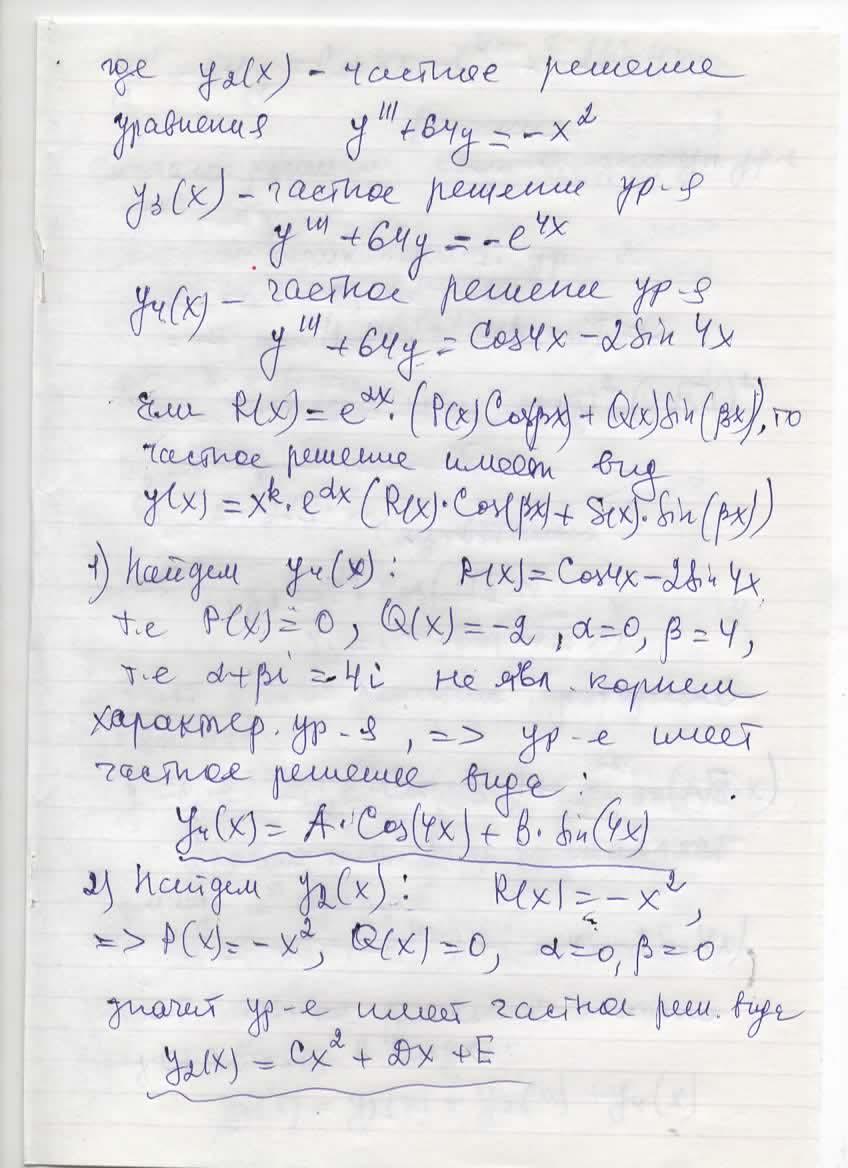 где y₂(x) – частное решение
уравнения y''' + 64y = -x²
y₃(x) – частное решение ур-я
y''' + 64y = -e⁴ˣ
y₄(x) – частное решение ур-я
y''' + 64y = Cos4x - 2Sin 4x
Если R(x) = e^αx · (P(x)Cos(βx) + Q(x)Sin(βx)), то
частное решение имеет вид
y(x) = xᵏ · e^αx (R(x)·Cos(βx) + S(x)·Sin(βx))
1) Найдем y₄(x): R(x) = Cos4x - 2Sin 4x,
т.е P(x) = 0, Q(x) = -2, α=0, β=4,
т.е α+βi = 4i не явл. корнем
характер. ур-я, => ур-е имеет
частное решение вида:
y₄(x) = A·Cos(4x) + B·Sin(4x)
2) Найдем y₂(x): R(x) = -x²,
=> P(x) = -x², Q(x) = 0, α=0, β=0
значит ур-е имеет частное реш. вида
y₂(x) = Cx² + Dx + E